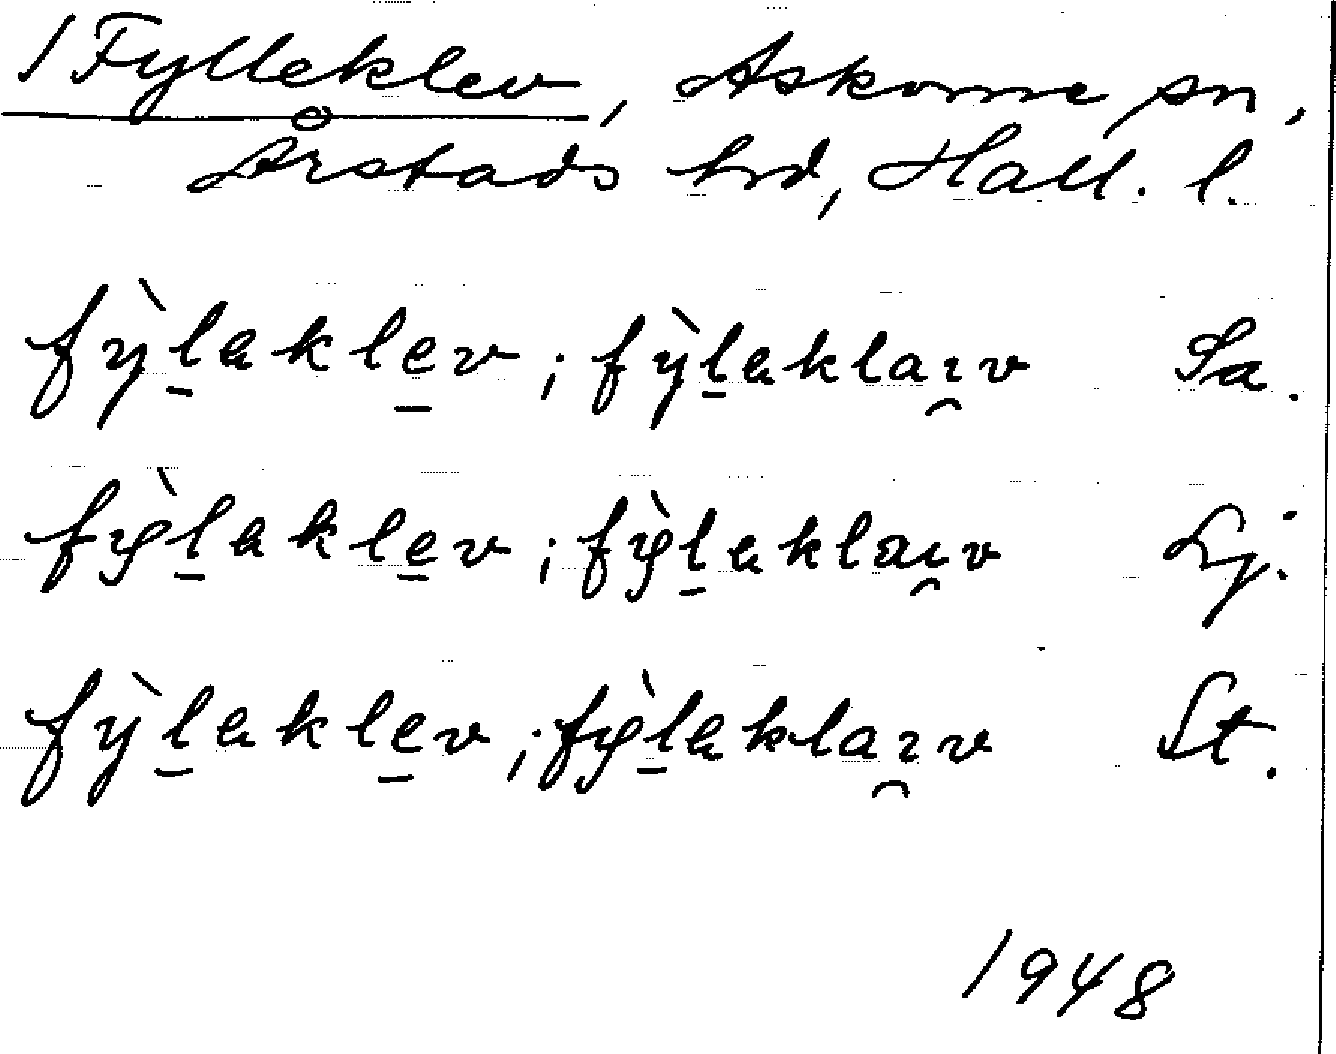 / Fylleklev, Askome sn,
Årstads hrd, Hall. l.
fy̍̀l̠ɐkle̠v ; fỳl̠ɐklaɪ̯v Sa.
fỳl̠ɐkle̠v ; fỳl̠ɐklaɪ̯v Lj.
fỳl̠ɐkle̠v ; fỳl̠ɐklaɪ̯v St.
1948